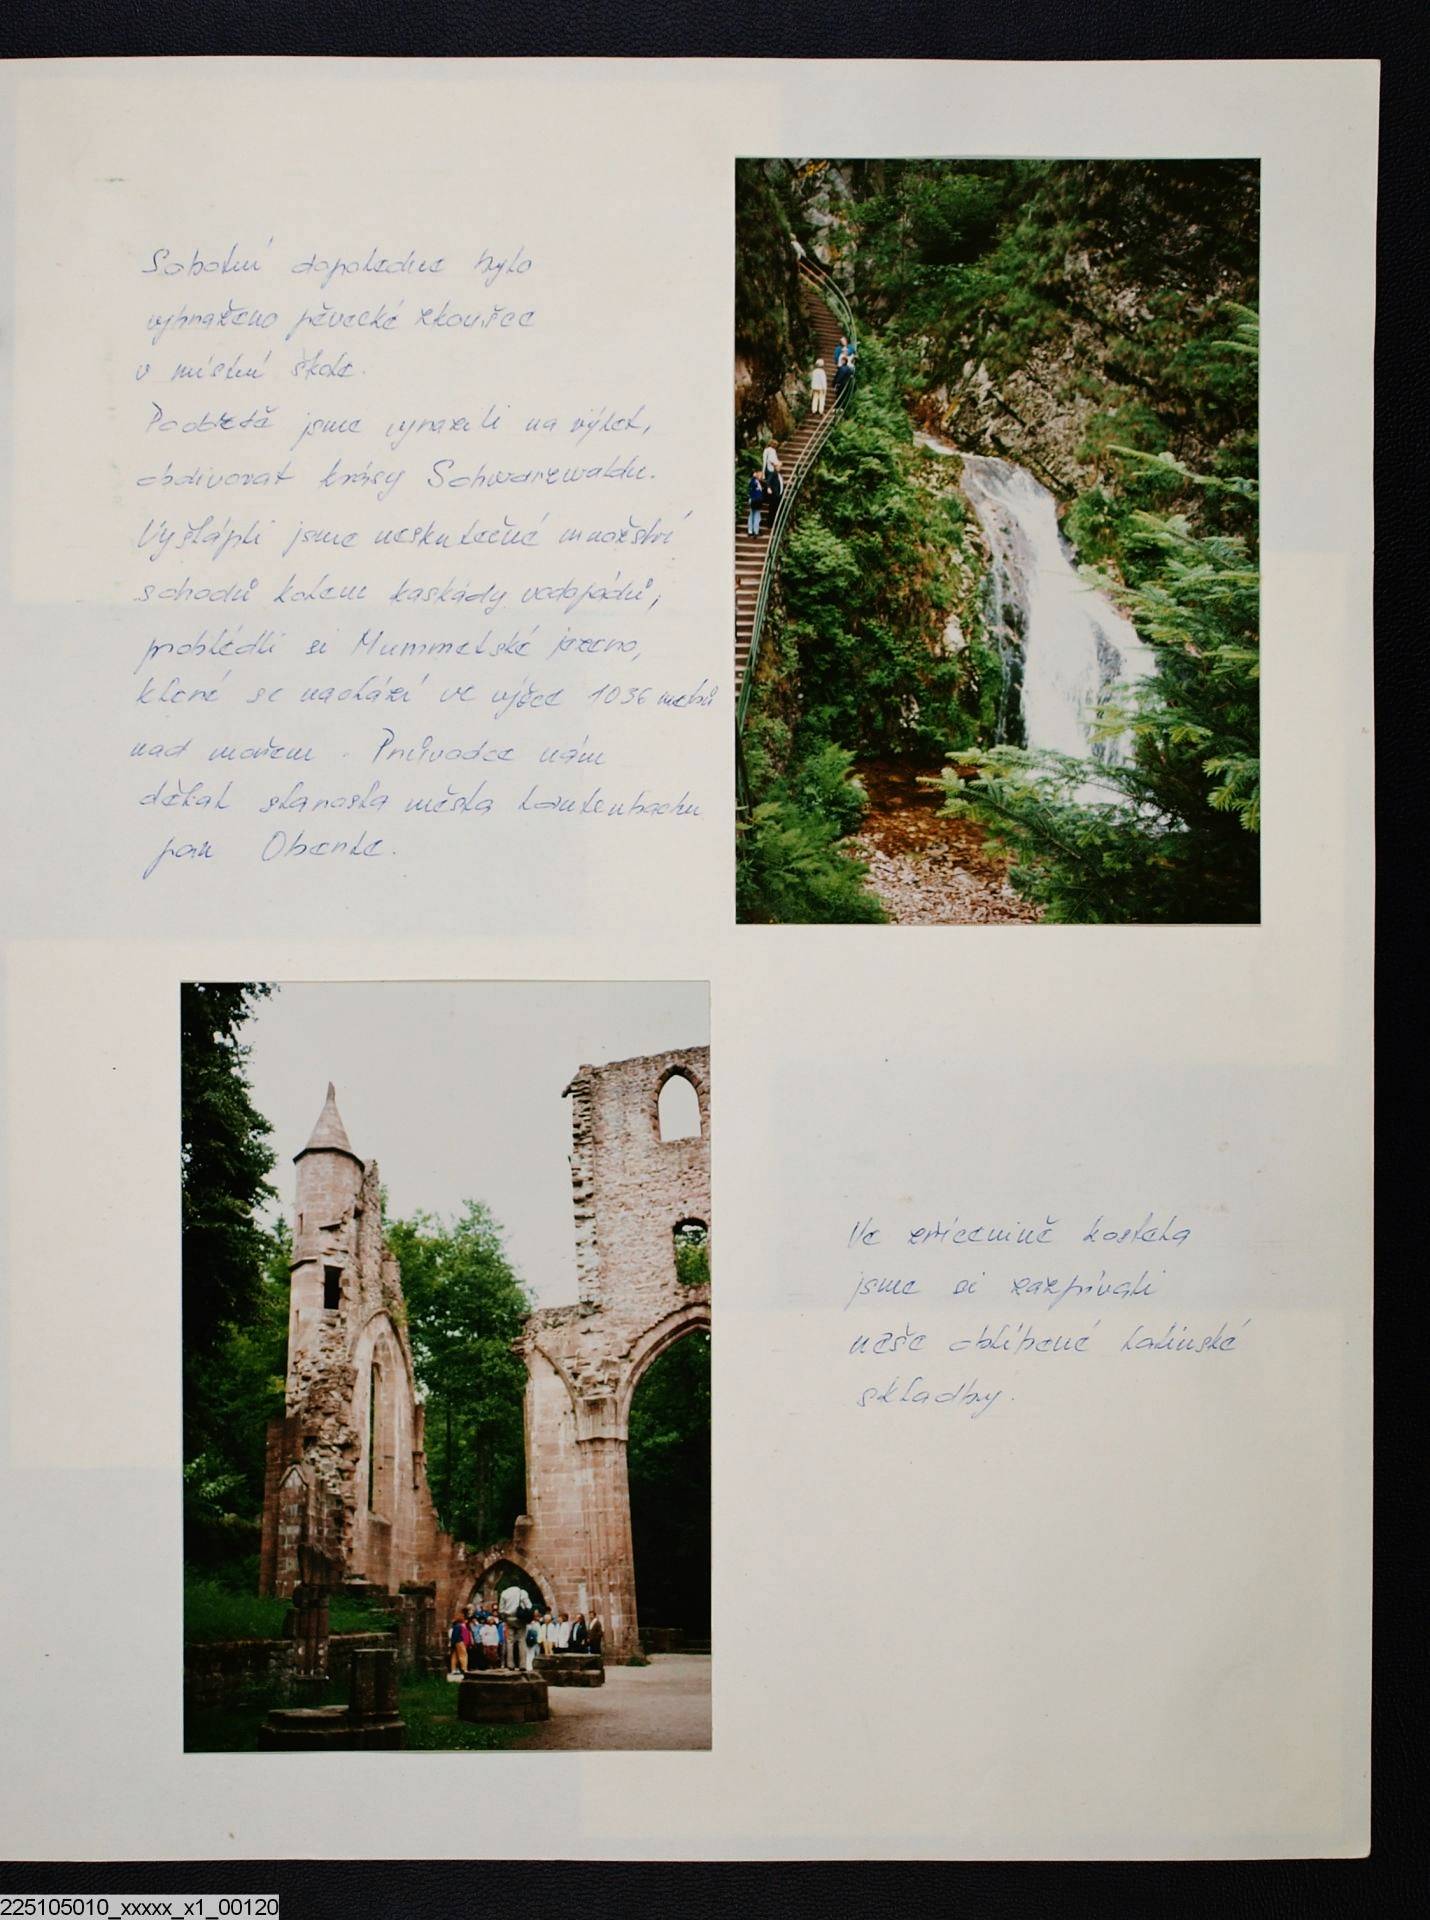 Sobotní dopoledne bylo
vyhraženo pěvecké zkoušce
v místní škole.
Poobědě jsme vyrazili na výlet,
obdivovat krásy Schwarzwaldu.
Vyšlápli jsme neskutečné množství
schodů kolem kaskády vodopádů,
prohlédli si Mummelské jezero,
které se nachází ve výšce 1036 metrů
nad mořem. Průvodce nám
dělal starosta města Lautenbachu
pan Oberle.
Ve zřícenině kostela
jsme si zazpívali
naše oblíbené latinské
skladby.
225105010_xxxxx_x1_00120